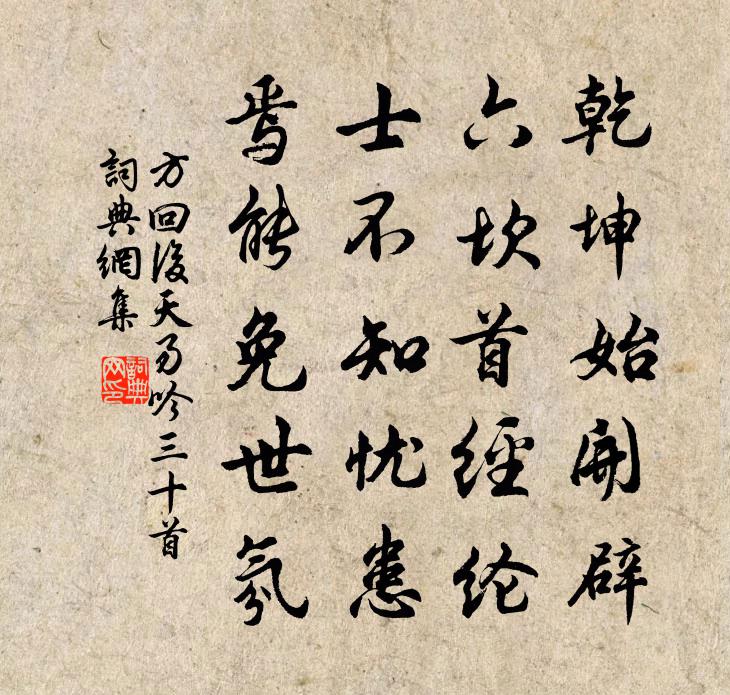 乾坤始開辟
六坎首經纶
士不知忧患
焉能免世氛
方回後天易吟三十首
詞典網集
詞典
网印